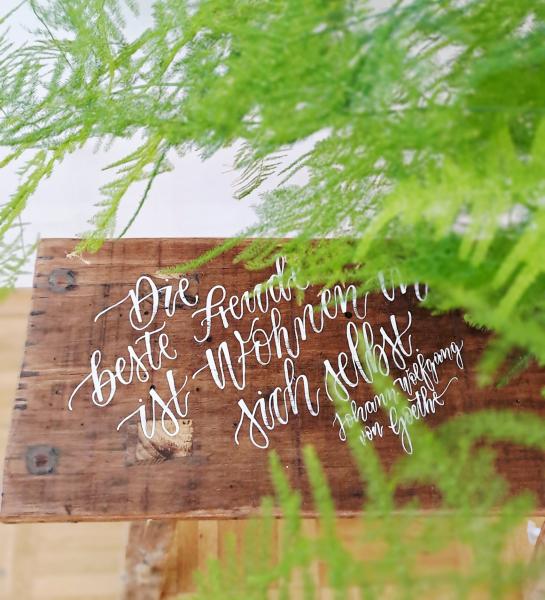 Die Freude
beste Wohnen in
ist sich selbst
Johann Wolfgang
von Goethe